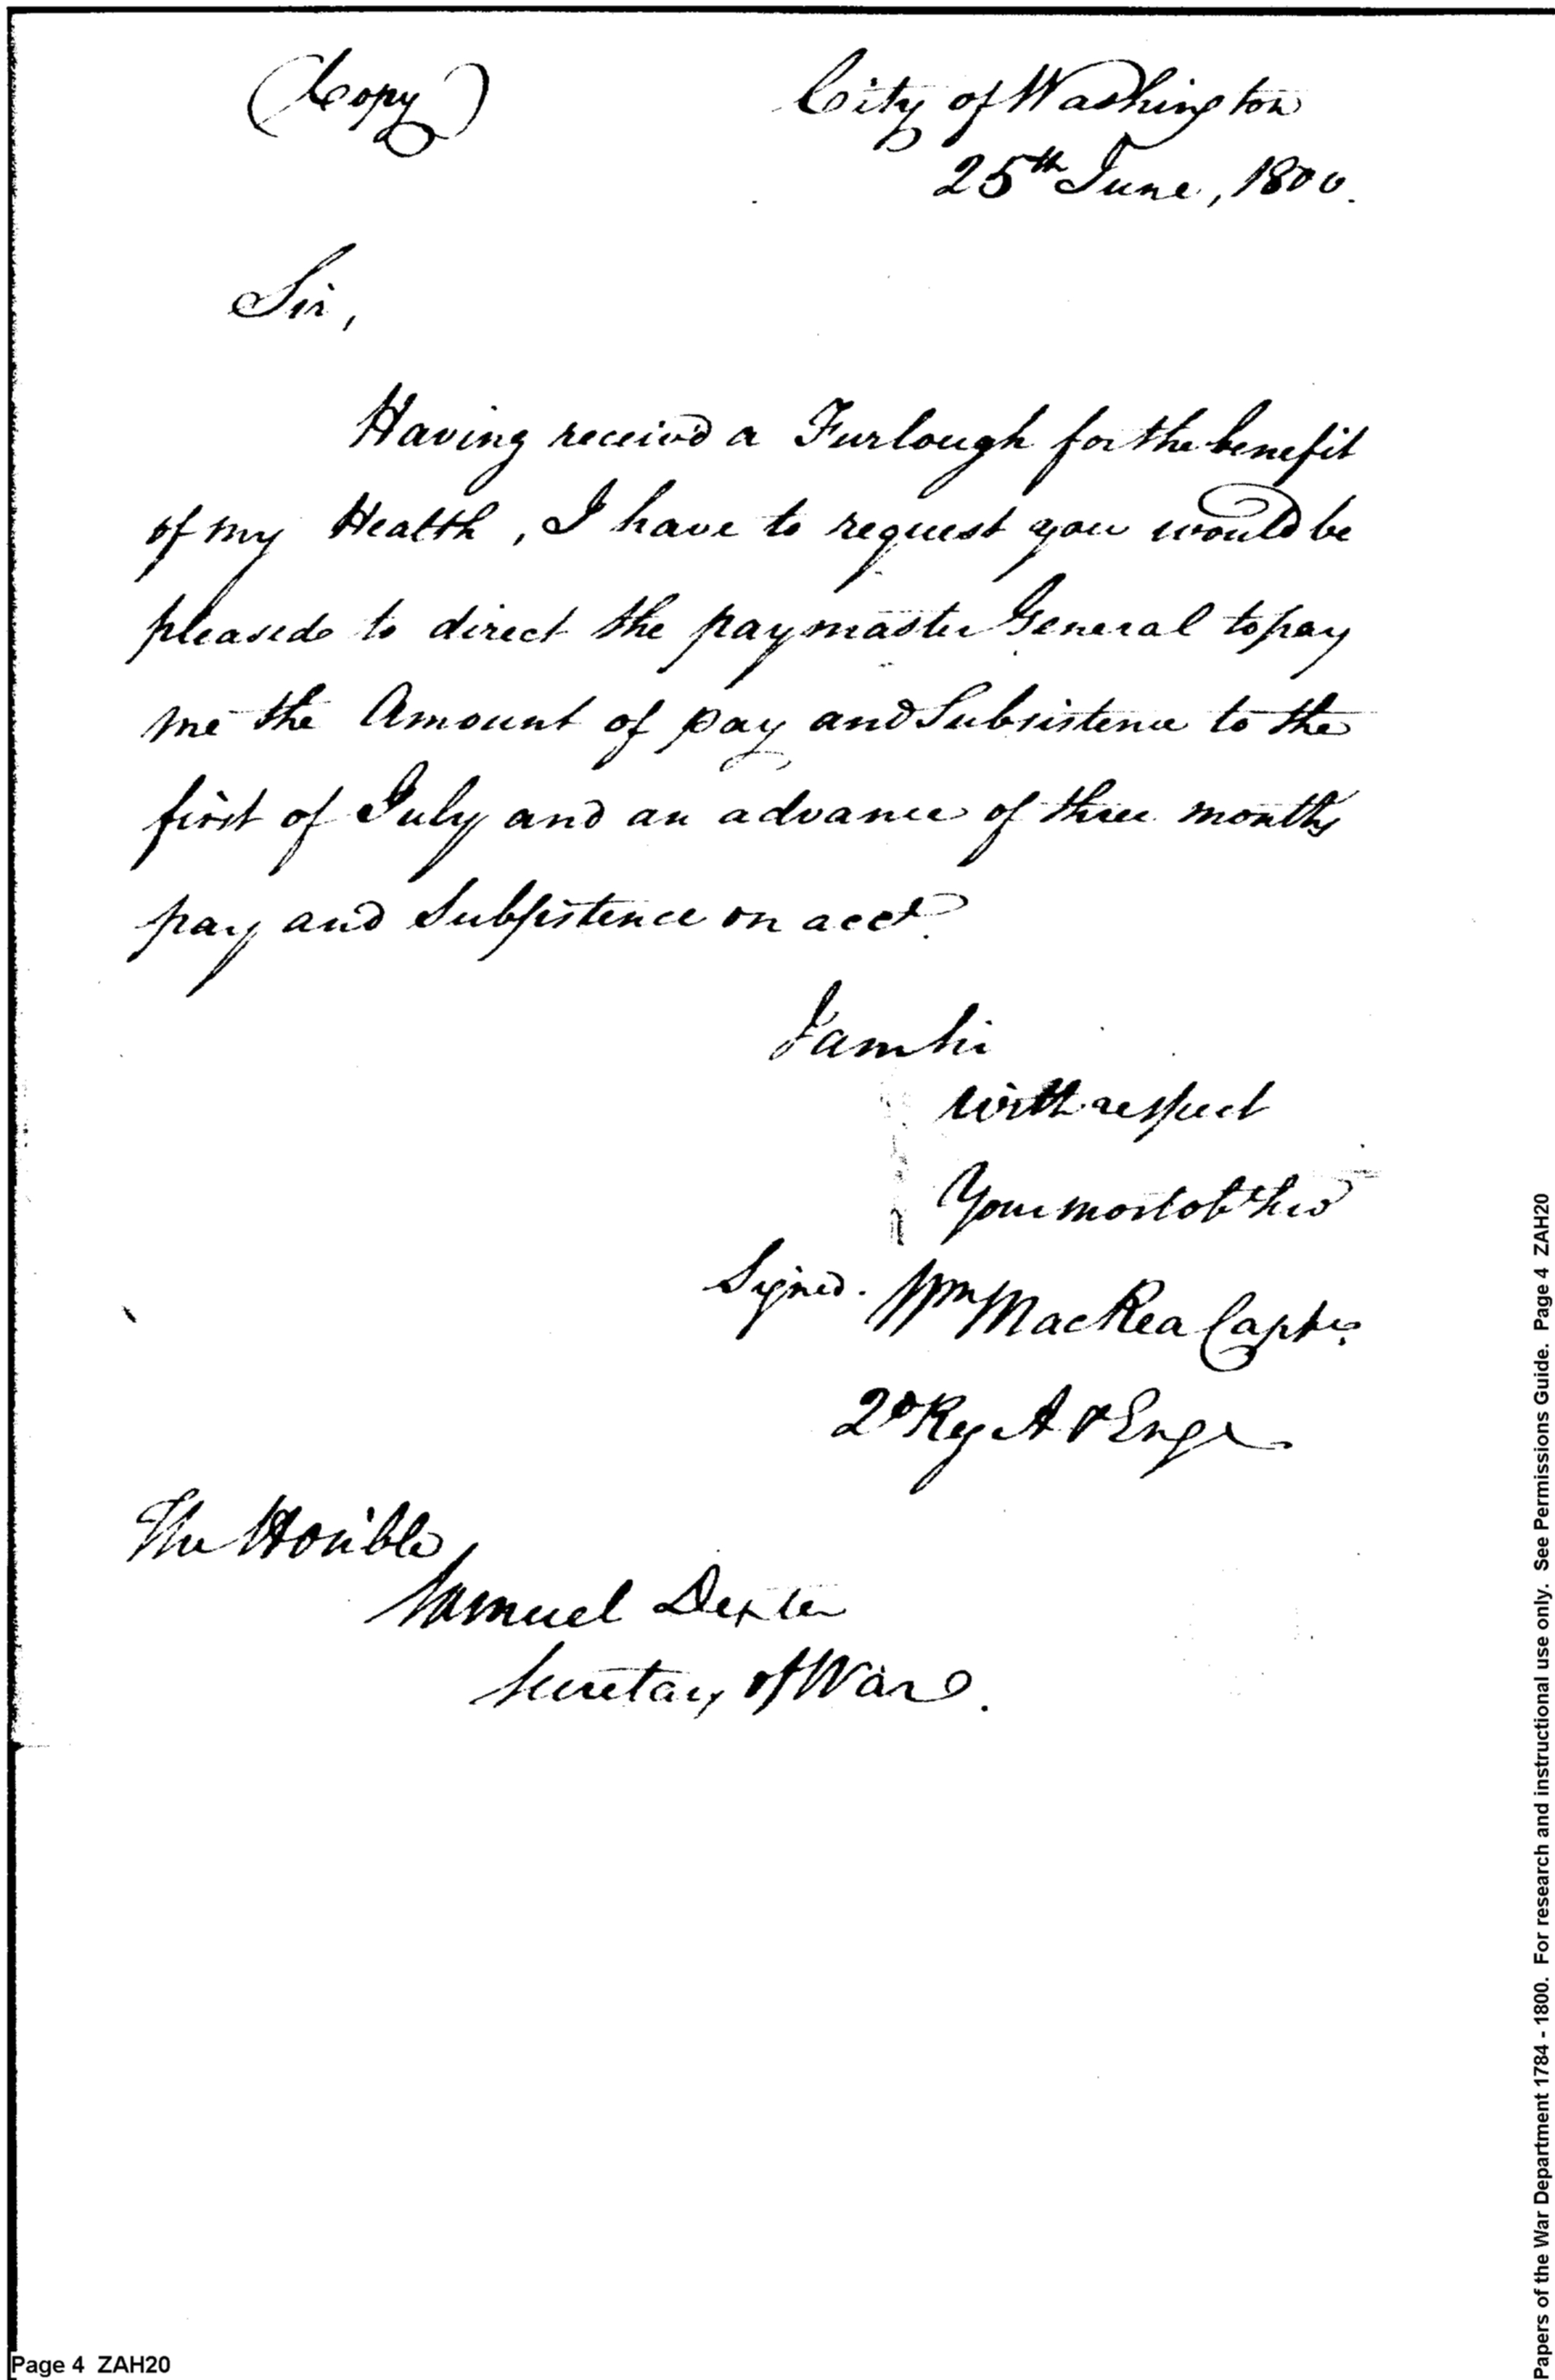 (Copy)
City of Washington
25th June, 1800.
Sir,
Having receiv'd a Furlough for the benefit
of my Health, I have to request you would be
pleased to direct the paymaster General to pay
me the Amount of pay and Subsistence to the
first of July and an advance of three months
pay and Subsistence on acct.
I am Sir
with respect
Your most obt
Signed. Wm MacRea Captn.
2d Reg A & Engr
The Hon'ble
Samuel Dexter
Secretary of War.
Page 4 ZAH20
Papers of the War Department 1784 - 1800. For research and instructional use only. See Permissions Guide. Page 4 ZAH20